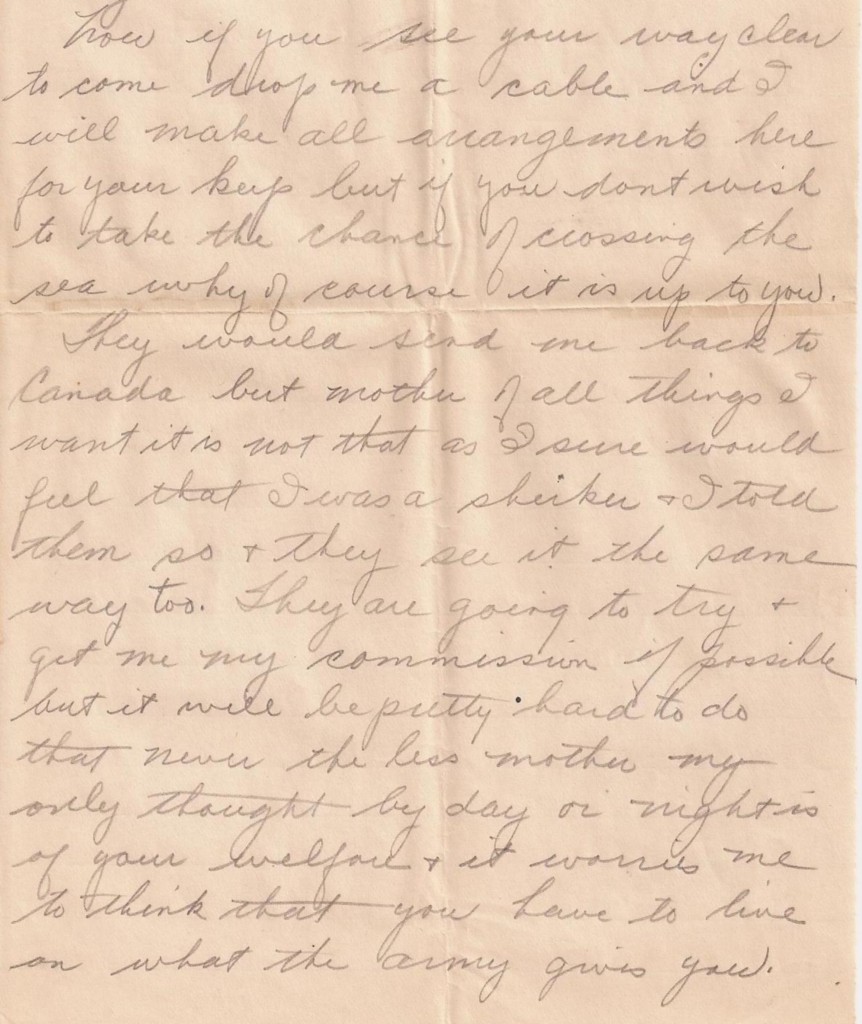 Now if you see your way clear
to come drop me a cable and I
will make all arrangements here
for your keep but if you dont wish
to take the chance of crossing the
sea why of course it is up to you.
They would send me back to
Canada but mother of all things I
want it is not that as I sure would
feel that I was a shirker + I told
them so + they see it the same
way too. They are going to try +
get me my commission if possible
but it will be pretty hard to do
that never the less mother my
only thought by day or night is
of your welfare + it worries me
to think that you have to live
on what the army gives you.